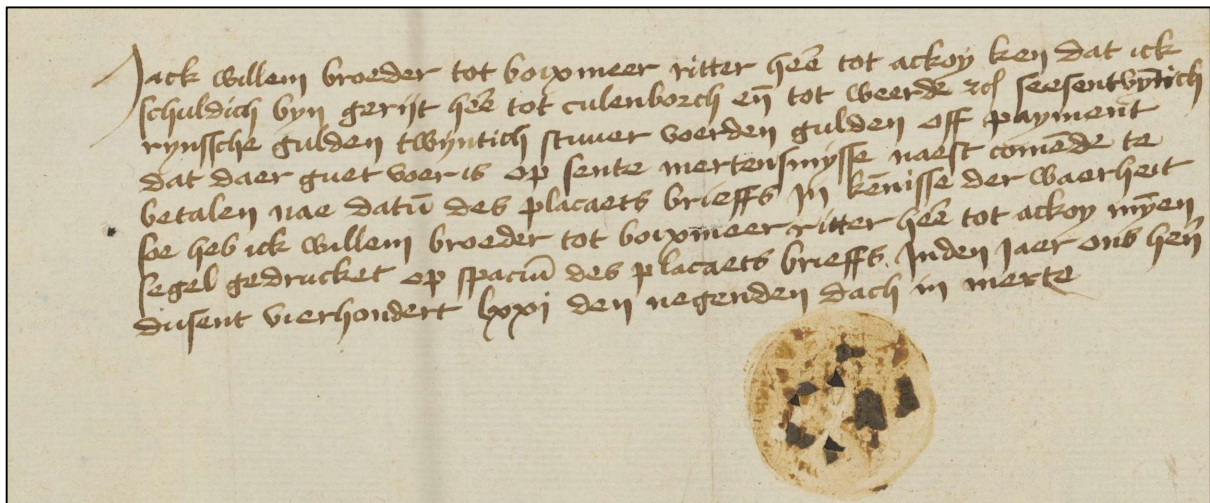 Jack willem broeder tot boixmeer ritter hēē tot ackoy ken dat ick
schuldich byn gerijt hēē tot culenborch eñ tot weerde seesentvȳtich
rynssche gulden twyntich stuver voerden gulden off payment
dat daer guet voer is op sente mertensmysse naest comēde te
betalen nae datū des placaets brieffs In kēnisse der waerheit
soe heb ick willem broeder tot boixmeer ritter hēē tot ackoy mȳen
segel gedrucket op spaciū des placaets brieffs Inden Jaer ons heñ
dusent vierhondert lxxi den negenden dach in merte